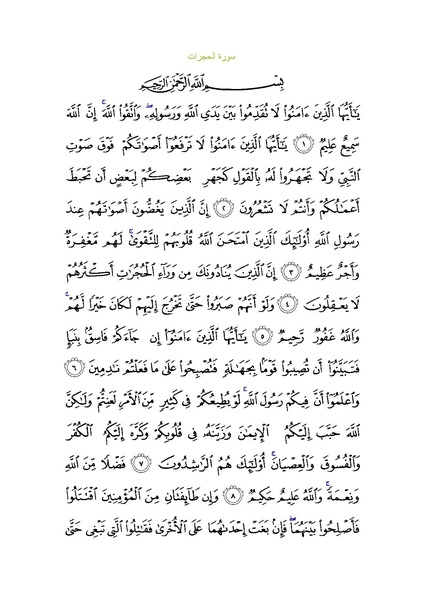 سورة الحجرات
بِسْمِ ٱللَّهِ ٱلرَّحْمَٰنِ ٱلرَّحِيمِ
يَٰٓأَيُّهَا ٱلَّذِينَ ءَامَنُوا۟ لَا تُقَدِّمُوا۟ بَيْنَ يَدَىِ ٱللَّهِ وَرَسُولِهِۦ ۖ وَٱتَّقُوا۟ ٱللَّهَ ۚ إِنَّ ٱللَّهَ
سَمِيعٌ عَلِيمٌ ﴿١﴾ يَٰٓأَيُّهَا ٱلَّذِينَ ءَامَنُوا۟ لَا تَرْفَعُوٓا۟ أَصْوَٰتَكُمْ فَوْقَ صَوْتِ
ٱلنَّبِىِّ وَلَا تَجْهَرُوا۟ لَهُۥ بِٱلْقَوْلِ كَجَهْرِ بَعْضِكُمْ لِبَعْضٍ أَن تَحْبَطَ
أَعْمَٰلُكُمْ وَأَنتُمْ لَا تَشْعُرُونَ ﴿٢﴾ إِنَّ ٱلَّذِينَ يَغُضُّونَ أَصْوَٰتَهُمْ عِندَ
رَسُولِ ٱللَّهِ أُو۟لَٰٓئِكَ ٱلَّذِينَ ٱمْتَحَنَ ٱللَّهُ قُلُوبَهُمْ لِلتَّقْوَىٰ ۚ لَهُم مَّغْفِرَةٌ
وَأَجْرٌ عَظِيمٌ ﴿٣﴾ إِنَّ ٱلَّذِينَ يُنَادُونَكَ مِن وَرَآءِ ٱلْحُجُرَٰتِ أَكْثَرُهُمْ
لَا يَعْقِلُونَ ﴿٤﴾ وَلَوْ أَنَّهُمْ صَبَرُوا۟ حَتَّىٰ تَخْرُجَ إِلَيْهِمْ لَكَانَ خَيْرًا لَّهُمْ ۚ
وَٱللَّهُ غَفُورٌ رَّحِيمٌ ﴿٥﴾ يَٰٓأَيُّهَا ٱلَّذِينَ ءَامَنُوٓا۟ إِن جَآءَكُمْ فَاسِقٌۢ بِنَبَإٍ
فَتَبَيَّنُوٓا۟ أَن تُصِيبُوا۟ قَوْمًۢا بِجَهَٰلَةٍ فَتُصْبِحُوا۟ عَلَىٰ مَا فَعَلْتُمْ نَٰدِمِينَ ﴿٦﴾
وَٱعْلَمُوٓا۟ أَنَّ فِيكُمْ رَسُولَ ٱللَّهِ ۚ لَوْ يُطِيعُكُمْ فِى كَثِيرٍ مِّنَ ٱلْأَمْرِ لَعَنِتُّمْ وَلَٰكِنَّ
ٱللَّهَ حَبَّبَ إِلَيْكُمُ ٱلْإِيمَٰنَ وَزَيَّنَهُۥ فِى قُلُوبِكُمْ وَكَرَّهَ إِلَيْكُمُ ٱلْكُفْرَ
وَٱلْفُسُوقَ وَٱلْعِصْيَانَ ۚ أُو۟لَٰٓئِكَ هُمُ ٱلرَّٰشِدُونَ ﴿٧﴾ فَضْلًا مِّنَ ٱللَّهِ
وَنِعْمَةً ۚ وَٱللَّهُ عَلِيمٌ حَكِيمٌ ﴿٨﴾ وَإِن طَآئِفَتَانِ مِنَ ٱلْمُؤْمِنِينَ ٱقْتَتَلُوا۟
فَأَصْلِحُوا۟ بَيْنَهُمَا ۖ فَإِنۢ بَغَتْ إِحْدَىٰهُمَا عَلَى ٱلْأُخْرَىٰ فَقَٰتِلُوا۟ ٱلَّتِى تَبْغِى حَتَّىٰ